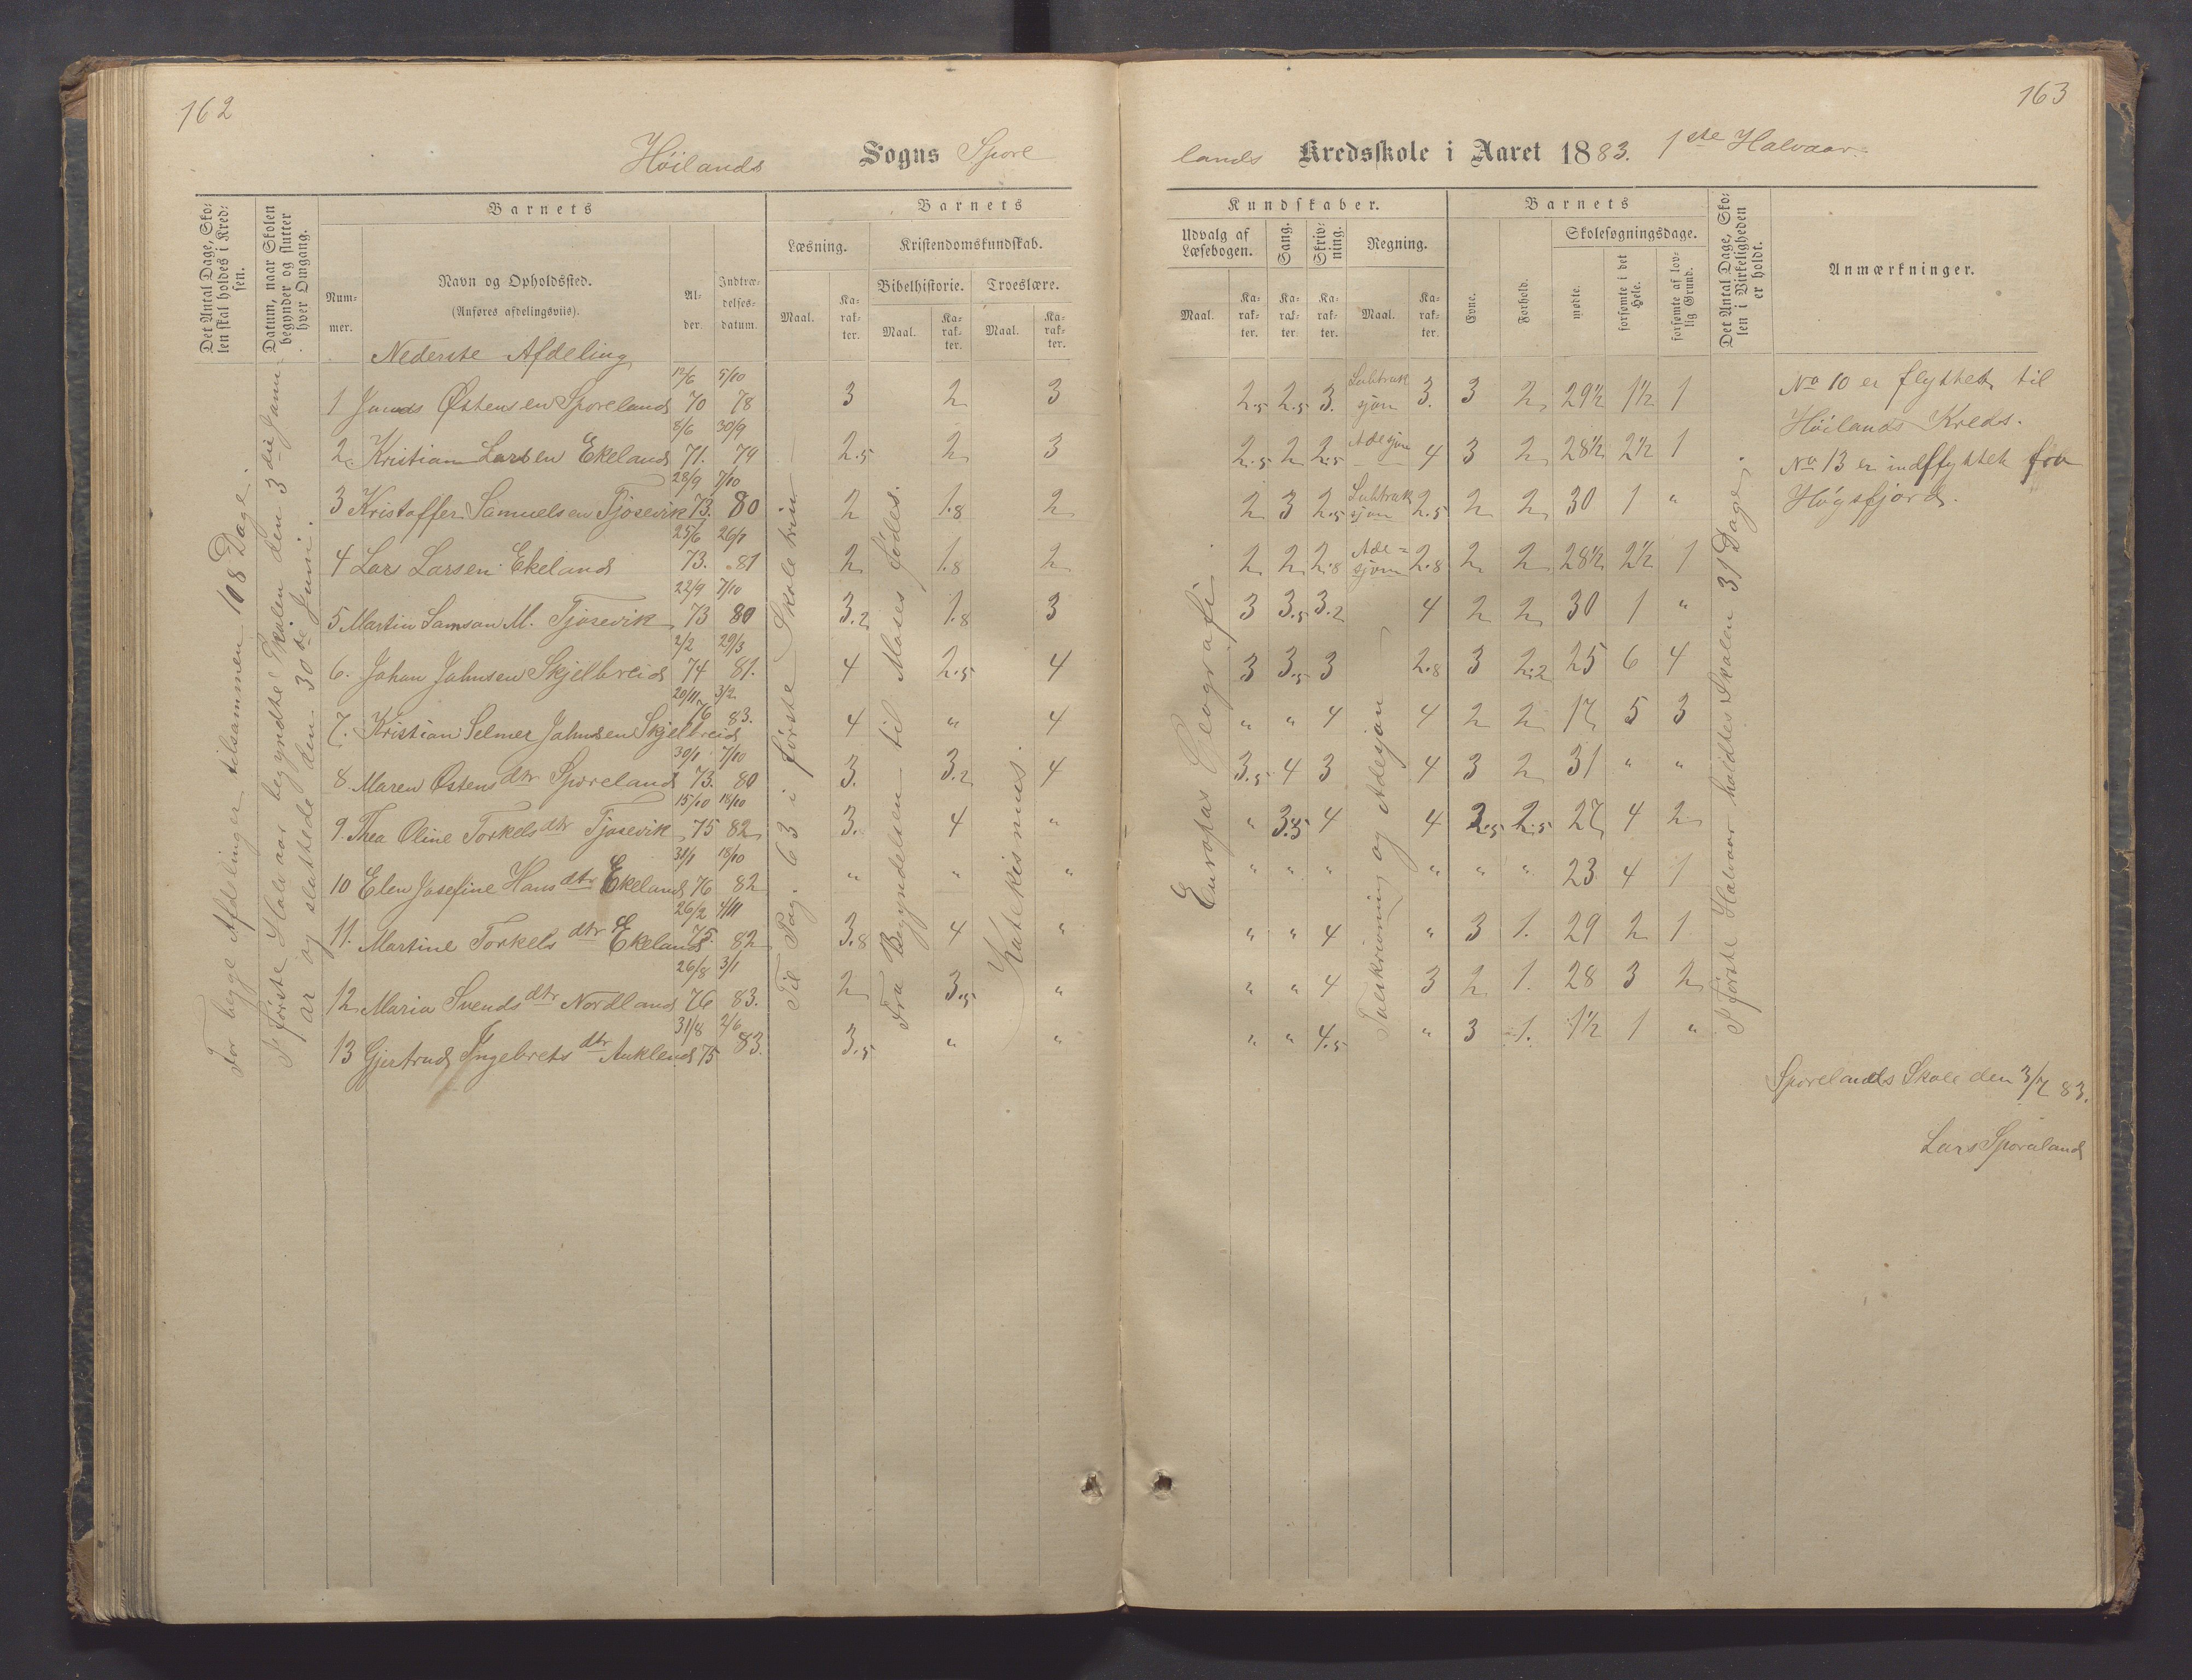 162
Höilands Sogns Spore
Det Antal Dage, Skolen skal holdes i Kredsen.
Datum, naar Skolen begynder og slutter hver Omgang.
Barnets
Nummer.
Navn og Opholdssted.
(Anføres afdelingsviis).
Alder.
Indtrædelsesdatum.
Barnets
Læsning.
Kristendomskundskab.
Bibelhistorie.
Troeslære.
Maal.
Karakter.
Maal.
Karakter.
Maal.
Karakter.
For begge Afdelinger tilsammen 108 Dage.
I første Halvaar begyndte Skolen den 3die Januar og sluttede den 30te Juni.
Til Pag. 63 i første Skoletrin
Fra Begyndelsen til Moses fødes.
Katekismus.
Nederste Afdeling
12/6 5/10
1 Østensen Sporeland 70 78 3 2 3
8/6 30/9
2 Kristian Larsen Ekeland 71. 79 2.5 2 3
28/9 7/10
3 Kristoffer Samuelsen Tjosevik 73. 80 2 1.8 2
25/6 26/1
4 Lars Larsen Ekeland 73. 81 2 1.8 2
22/9 7/10
5 Martin Samson M. Tjosevik 73 80 3.2 1.8 3
2/2 29/3
6. Johan Johnsen Skjelbreid 74 81. 4 2.5 4
20/11 3/2
7. Kristian Selmer Johnsen Skjelbreid 76 83. 4 " 4
30/1 7/10
8. Maren Østensdtr Sporeland 73. 80 3. 3.2 4
15/10 18/10
9. Thea Oline Torkelsdtr Tjosevik 75 82 3. 4 "
31/1 18/10
10 Elen Josefine Hansdtr Ekeland 76 82 " " "
26/2 4/11
11. Martine Torkelsdtr Ekeland 75. 82 3.8 4 "
26/8 3/1
12 Maria Svendsdtr Nordland 76 83. 2 3.5 "
31/8 2/6
13 Gjertrud Ingebretsdtr Aukland 75 83. 3.5 " "
163
lands Kredsskole i Aaret 1883. 1ste Halvaar
Kundskaber.
Udvalg af Læsebogen.
Sang.
Skrivning.
Regning.
Maal.
Karakter.
Karakter.
Karakter.
Maal.
Karakter.
Barnets
Evne.
Forhold.
Skolesøgningsdage.
mødte.
forsømte i det Hele.
forsømte af lovlig Grund.
Det Antal Dage, Skolen i Virkeligheden er holdt.
Anmærkninger.
Europas Geografi
Talskrivning og Adesjon
I første Halvaar holdtes Skolen 31 Dage.
2.5 2.5 3. Subtraksjon 3. 3 2 29½ 1½ 1
2.5 2 2.5 Adesjon 4 3 2 28½ 2½ 1
2 3 2.5 Subtraksjon 2.5 2 2 30 1 "
2 2 2.8 Adesjon 2.8 2 2 28½ 2½ 1
3 3.5 3.2 4 2 2 30 1 "
3 3.5 3 2.8 3 2.2 25 6 4
" " 4 4 2 2 17 5 3
3.5 4 3 4 3 2 31 " "
" 3.5 4 4 2.5 2.5 27 4 2
" " " " " " 23 4 1
" " 4 " 3 1. 29 2 1
" " 4 3 2 1. 28 3 2
" " 4.5 " 3 1. 1½ 1 "
No 10 er flyttet til
Höilands Kreds.
No 13 er indflyttet fra
Høgsfjord.
Sporelands Skole den 3/7 83.
Lars Sporeland